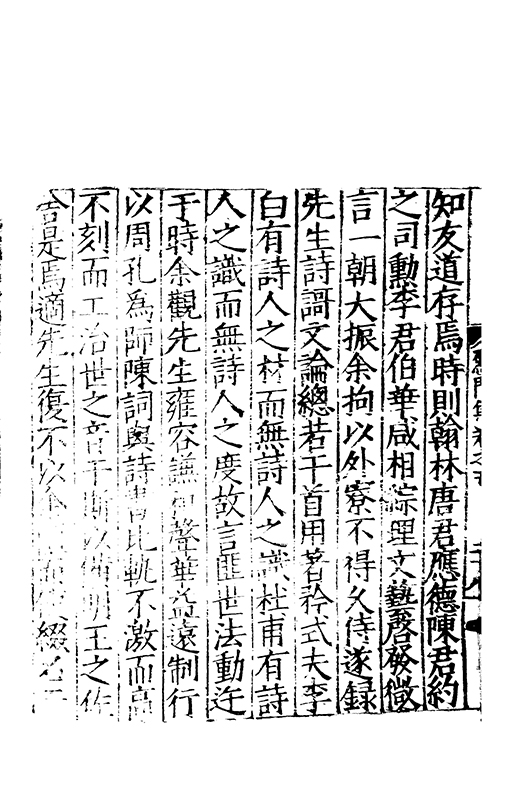 知友道存焉時則翰林唐君應德陳君約
之司勳李君伯華咸相綜理文藝啓發徵
言一朝大振余拘以外寮不得久侍遂録
先生詩謌文論總若干首用著矜式夫李
白有詩人之材而無詩人之識杜甫有詩
人之識而無詩人之度故言匪世法動迕
于時余觀先生雍容謙 聲華益遠制行
以周孔為師陳詞與詩書比軌不激而高
不刻而工治世之音于斯以備明王之佐
舍是焉適先生復不以余 綴名于